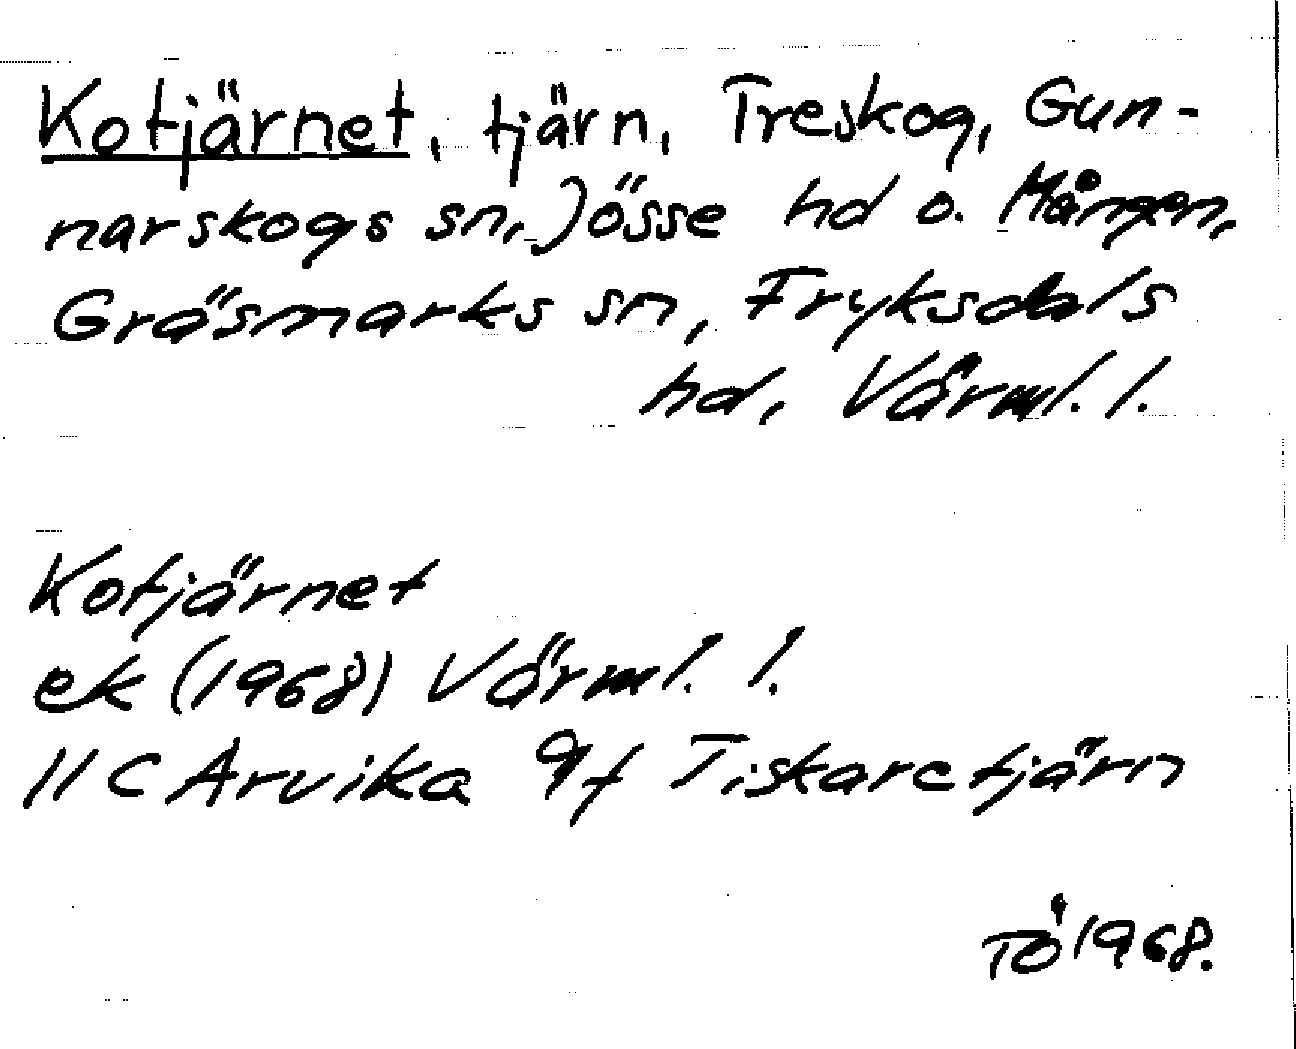 Kotjärnet, tjärn, Treskog, Gun-
narskogs sn, Jösse hd o. Mången,
Gräsmarks sn, Fryksdals
hd, Värml. l.
Kotjärnet
ek (1968) Värml. l.
11 C Arvika 9f Tiskaretjärn
TÖ 1968.